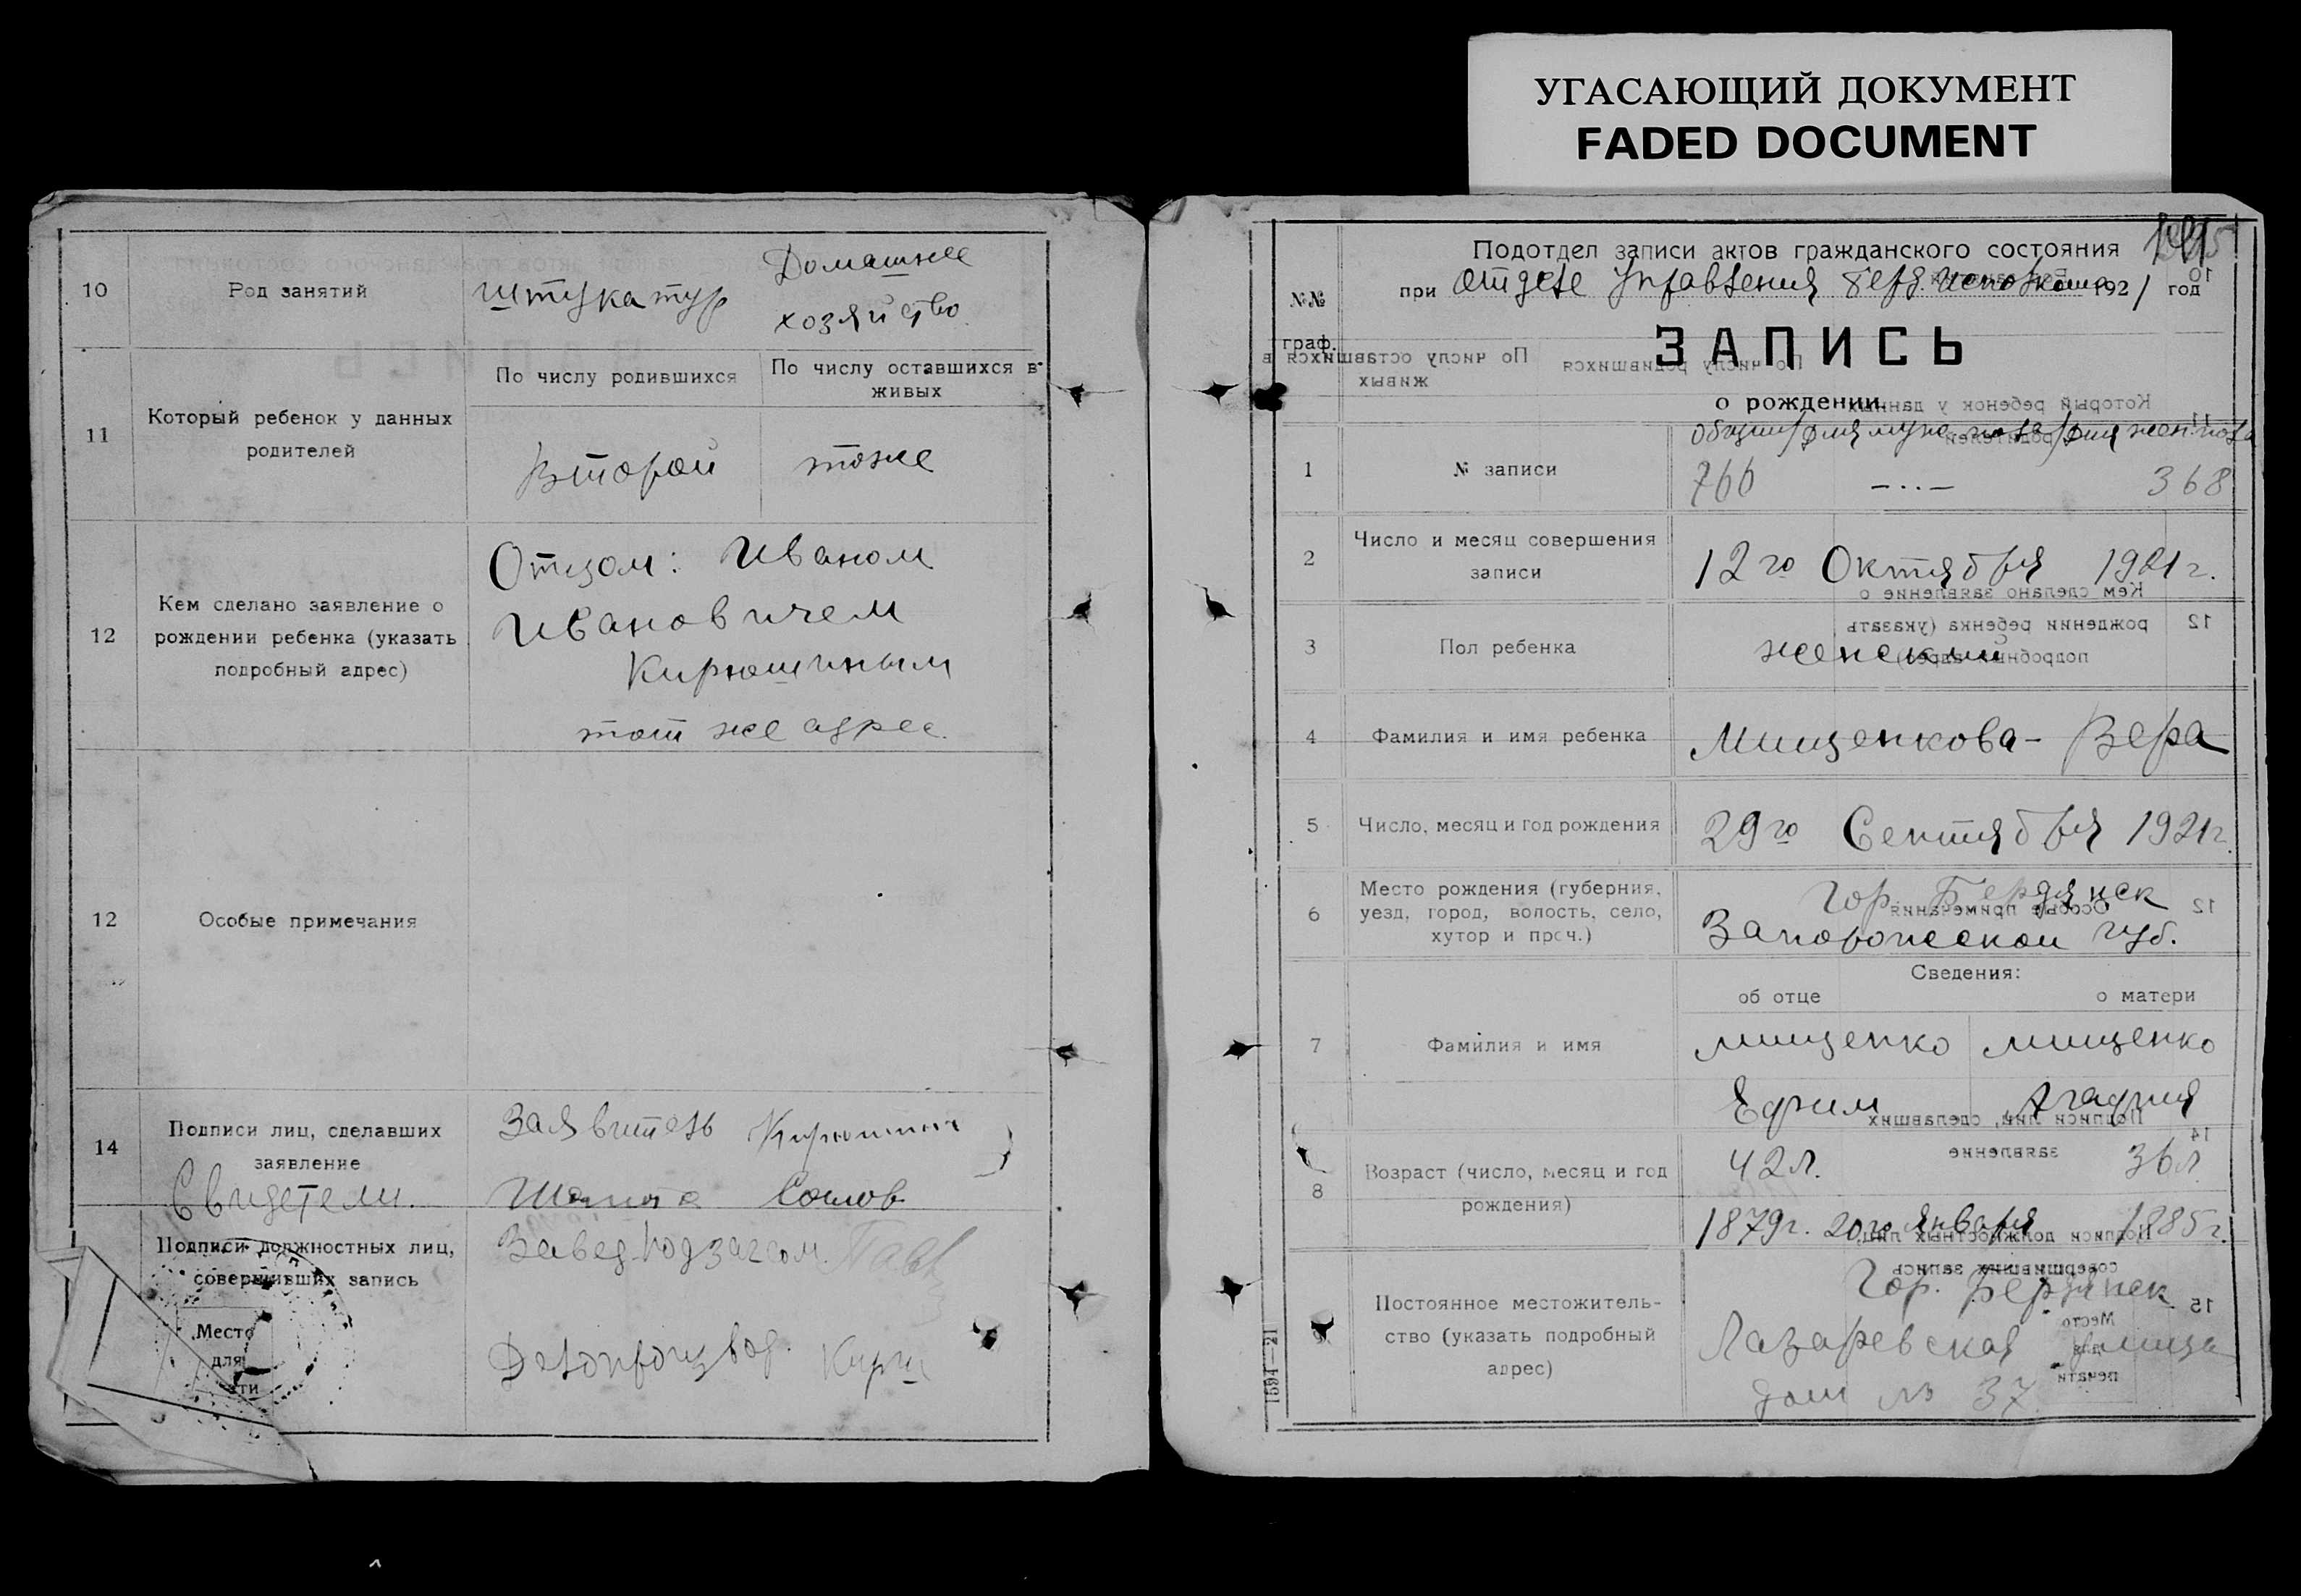 УГАСАЮЩИЙ ДОКУМЕНТ
FADED DOCUMENT
10
Род занятий
штукатур
Домашнее
хозяйство
11
Который ребенок у данных
родителей
По числу родившихся
По числу оставшихся в
живых
Второй
тоже
12
Кем сделано заявление о
рождении ребенка (указать
подробный адрес)
Отцом: Иваном
Ивановичем
Кирюшиным
тот же адрес.
12
Особые примечания
14
Подписи лиц, сделавших
заявление
Свидетели.
Заявитель Кирюшин
Подписи должностных лиц,
совершивших запись
Место
для
Завед. подзагсом.
Делопроизвод.
Подотдел записи актов гражданского состояния
при отделе Управления Берд. Исполкома 1921 год
№№
граф.
ЗАПИСЬ
о рождении
общий/для муж. пола/для жен. пола
1
№ записи
766 —··— 368
2
Число и месяц совершения
записи
12го Октября 1921 г.
3
Пол ребенка
женский
4
Фамилия и имя ребенка
Мищенкова - Вера
5
Число, месяц и год рождения
29го Сентября 1921г.
6
Место рождения (губерния,
уезд, город, волость, село,
хутор и проч.)
Гор. Бердянск
Запорожской губ.
Сведения:
об отце
о матери
7
Фамилия и имя
мищенко
мищенко
Ефим
Агафия
8
Возраст (число, месяц и год
рождения)
42л.
36л
1879г. 20го Января
1885г.
9
Постоянное местожитель-
ство (указать подробный
адрес)
Гор. Бердянск
Лазаревская улица
дом № 37
1594—21